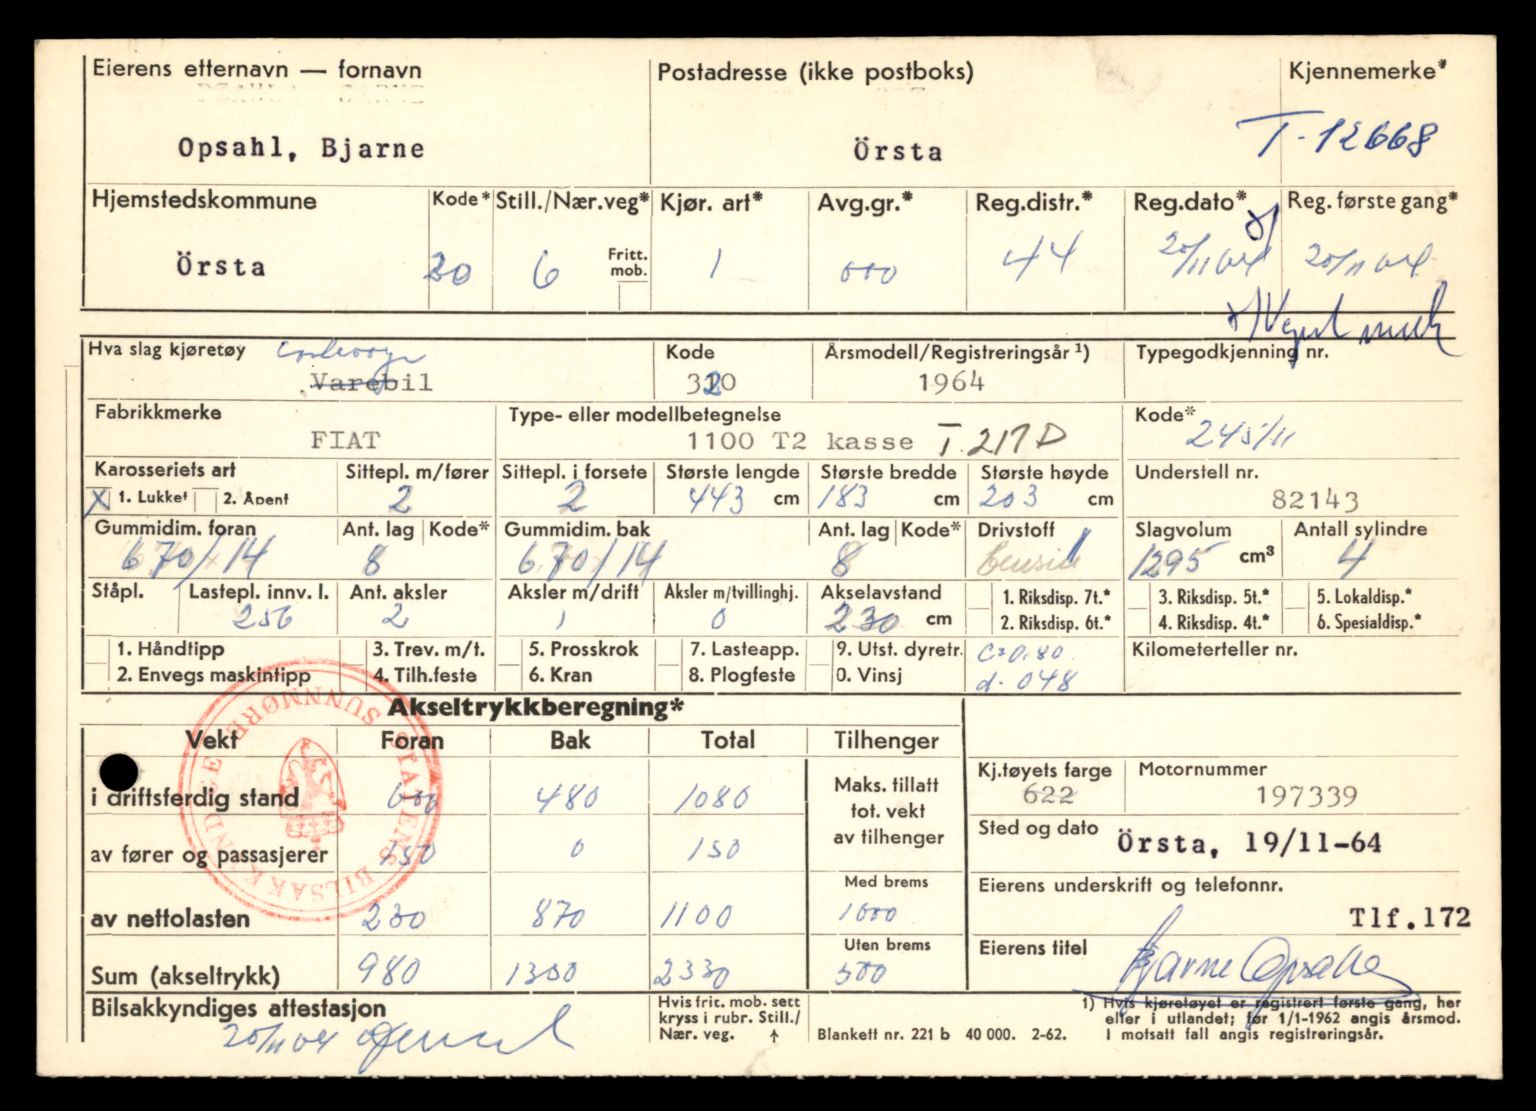 Eierens etternavn — fornavn Postadresse (ikke postboks) Kjennemerke*
Opsahl, Bjarne Örsta T-12668
Hjemstedskommune Kode* Still./Nær.veg* Kjør. art* Avg.gr.* Reg.distr.* Reg.dato* Reg. første gang*
Örsta 20 6 Fritt. mob. 1 000 44 20/11 64 20/11 64
Hva slag kjøretøy Kode Årsmodell/Registreringsår ¹) Typegodkjenning nr.
Varebil 320 1964
Fabrikkmerke Type- eller modellbetegnelse Kode*
FIAT 1100 T2 kasse T. 217 D 245/11
Karosseriets art Sittepl. m/fører Sittepl. i forsete Største lengde Største bredde Største høyde Understell nr.
X 1. Lukket 2. Åpent 2 2 443 cm 183 cm 203 cm 82143
Gummidim. foran Ant. lag Kode* Gummidim. bak Ant. lag Kode* Drivstoff Slagvolum Antall sylindre
670/14 8 670/14 8 bensin 1 1295 cm³ 4
Ståpl. Lastepl. innv. l. Ant. aksler Aksler m/drift Aksler m/tvillinghj. Akselavstand 1. Riksdisp. 7t.* 3. Riksdisp. 5t.* 5. Lokaldisp.*
256 2 1 0 230 cm 2. Riksdisp. 6t.* 4. Riksdisp. 4t.* 6. Spesialdisp.*
1. Håndtipp 3. Trev. m/t. 5. Prosskrok 7. Lasteapp. 9. Utst. dyretr. C=0.80 Kilometerteller nr.
2. Envegs maskintipp 4. Tilh.feste 6. Kran 8. Plogfeste 0. Vinsj d. 048
Akseltrykkberegning*
Vekt Foran Bak Total Tilhenger
Kj.tøyets farge Motornummer
i driftsferdig stand 600 480 1080 Maks. tillatt tot. vekt av tilhenger 622 197339
Sted og dato Örsta, 19/11-64
av fører og passasjerer 150 0 150
Med brems Eierens underskrift og telefonnr.
av nettolasten 230 870 1100 1000 Tlf.172
Uten brems Eierens titel
Sum (akseltrykk) 980 1350 2330 500 Bjarne Opsahl
Bilsakkyndiges attestasjon Hvis frit. mob. sett kryss i rubr. Still./ Nær. veg. ↑ Blankett nr. 221 b 40 000. 2-62.
20/11 64
1) Hvis kjøretøyet er registrert første gang, her
eller i utlandet; før 1/1-1962 angis årsmod.
I motsatt fall angis registreringsår.
STATENS BILSAKKYNDIGE SUNNMØRE